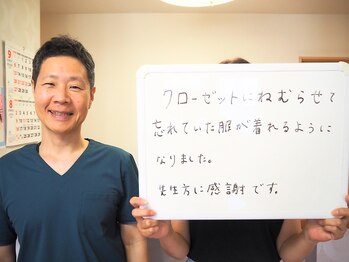 クローゼットにねむらせて
忘れていた服が着れるように
なりました。
先生方に感謝です。